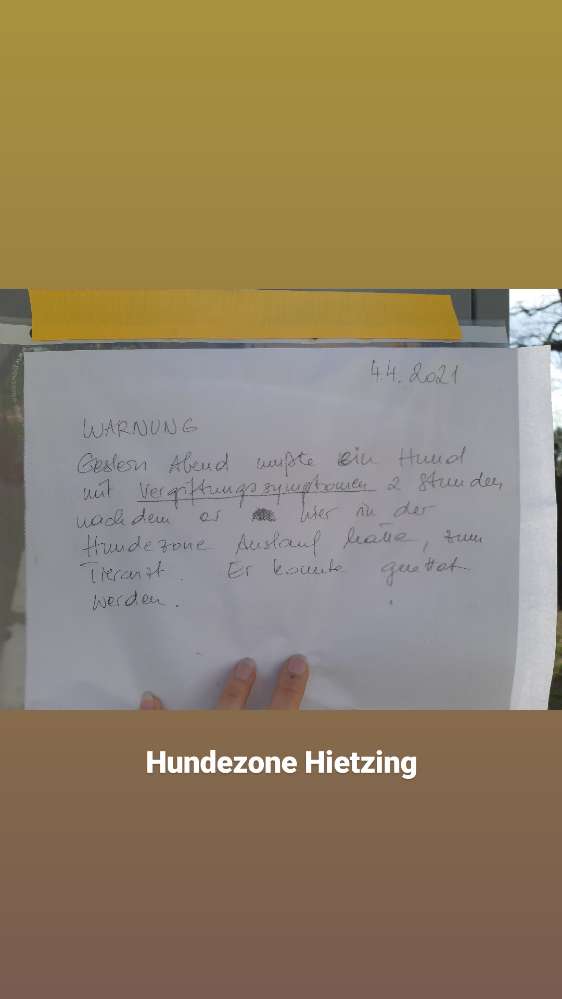 4.4. 2021
WARNUNG
Gestern Abend mußte ein Hund
mit Vergiftungssymptomen 2 Stunden,
nachdem er hier in der
Hundezone Auslauf hatte, zum
Tierarzt. Er konnte gerettet
werden.
Hundezone Hietzing